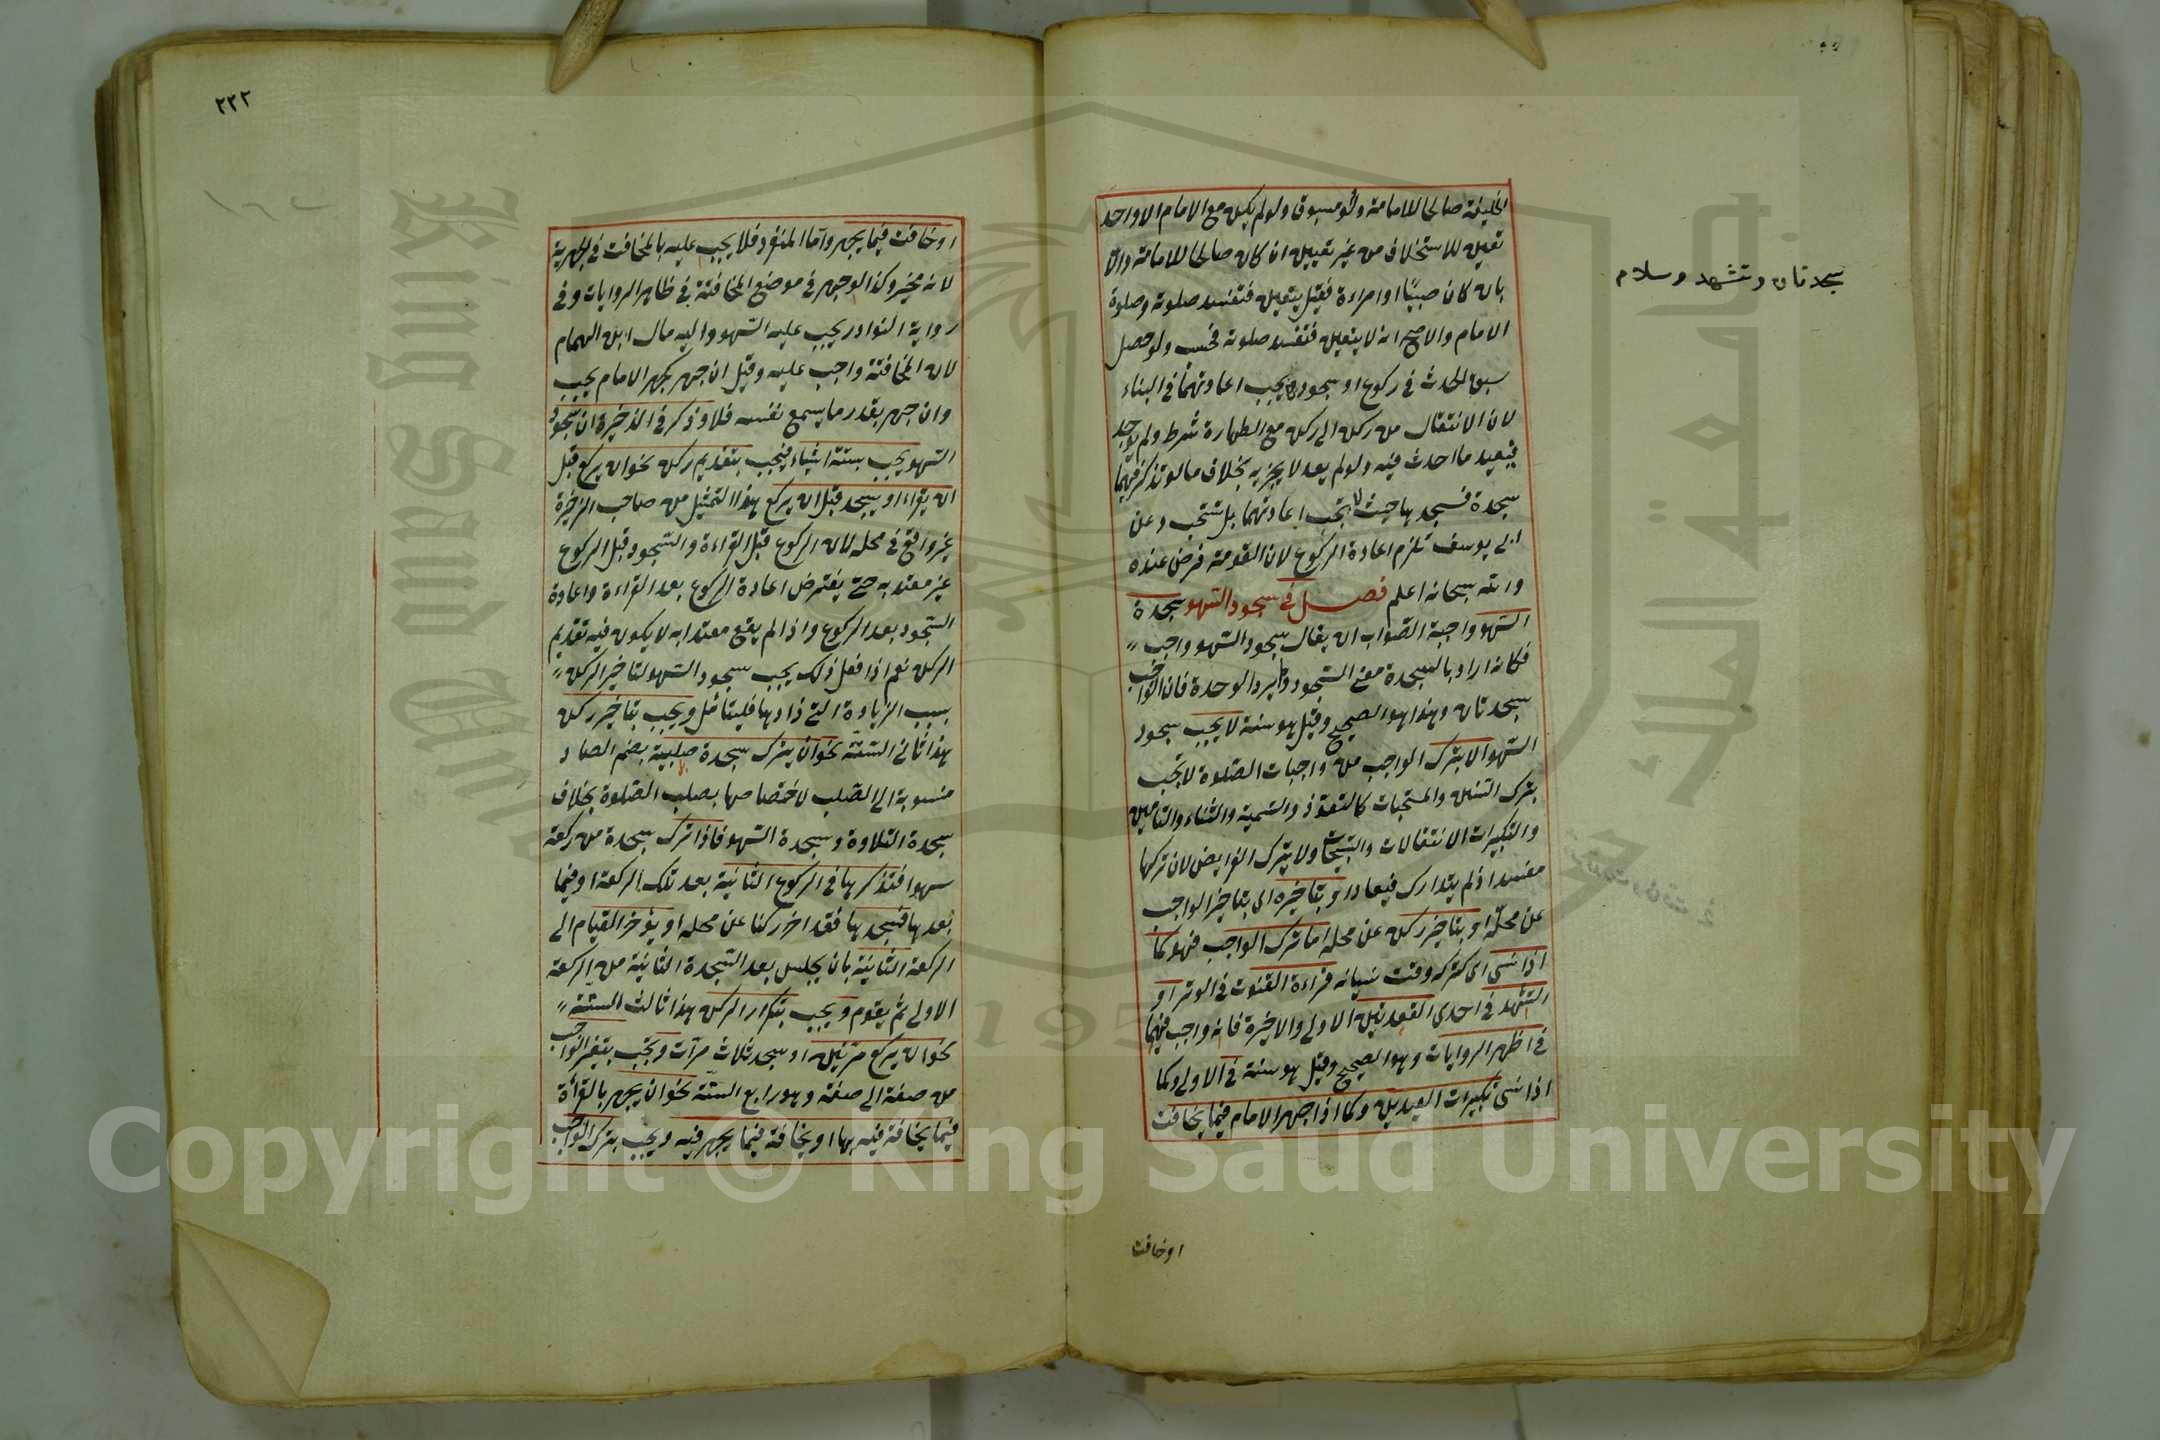 الخليفة صالحا للامامة ولو مسبوق ولو لم يكن مع الامام الا واحد
تعين للاستخلاف من غير تعيين ان كان صالحا للامامة والا
بان كان صبيا او امراءة فقيل يتعين فتفسد صلوته وصلوة
الامام والاصح انه لا يتعين فتفسد صلوته فحسب ولو حصل
سبق الحدث في ركوع او سجوده يجب اعادتهما في البناء
لان الانتقال من ركن الى ركن مع الطهارة شرط ولم يوجد
فيعيد ما احدث فيه ولو لم يعد لا يجزيه بخلاف ما لو تذكر فيهما
سجدة فسجدها حيث لا تجب اعادتهما بل تستحب وعن
ابي يوسف تلزم اعادة الركوع لان القومة فرض عنده
والله سبحانه اعلم فصل في سجود السهو سجدة
السهو واجبة الصواب ان يقال سجود السهو واجب
فكانه اراد بالسجدة معنى السجود ولم يرد الوحدة فان الواجب
سجدتان وهذا هو الصحيح وقيل هو سنة لا يجب سجود
السهو الا بترك الواجب من واجبات الصلوة لا تجب
بترك السنن والمستحبات كالتعوذ والتسمية والثناء والتامين
والتكبيرات الانتقالات والتسبيحات ولا بترك الفرايض لان تركها
مفسد اذ لم يتدارك فيعاد او بتاخيره اى بتاخير الواجب
عن محله او بتاخير ركن عن محله اما ترك الواجب فهو كما
اذا نسى اى كتركه وقت نسيانه قراءة القنوت في الوتر او
التشهد في احدى القعدتين الاولى والاخيرة فانه واجب فيهما
في اظهر الروايات وهو الصحيح وقيل هو سنة في الاولى وكما
اذا نسى تكبيرات العيدين وكما اذا جهر الامام فيما يخافت
اوخافت
سجدتان وتشهد وسلام
٢٢٢
اوخافت فيما يجهر واما المنفرد فلا يجب عليه بالمخافت في الجهرية
لانه مخير وكذا لو جهر في موضع المخافتة في ظاهر الروايات وفي
رواية النوادر يجب عليه السهو واليه مال ابن الهمام
لان المخافتة واجب عليه وقيل ان جهر كجهر الامام يجب
وان جهر بقدر ما يسمع نفسه فلا وذكر في الذخيرة ان سجود
السهو يجب بستة اشياء فيجب بتقديم ركن نحو ان يركع قبل
ان يقراء او يسجد قبل ان يركع هذا التمثيل من صاحب الذخيرة
غير واقع في محله لان الركوع قبل القراءة والسجود قبل الركوع
غير معتد به حتى يفترض اعادة الركوع بعد القراءة واعادة
السجود بعد الركوع واذا لم يقع معتدا به لا يكون فيه تقديم
الركن نعم اذا فعل ذلك يجب سجود السهو لتاخير الركن
بسبب الزيادة التى زادها فليتامل ويجب بتاخير ركن
هذا ثاني الستة نحو ان يترك سجدة صلبية بضم الصاد
منسوبة الى الصلب لاختصاصها بصلب الصلوة بخلاف
سجدة التلاوة وسجدة السهو فاذا ترك سجدة من ركعة
سهوا فتذكرها في الركوع الثانية بعد تلك الركعة او فيما
بعدها فسجدها فقد اخر ركنا عن محله او يؤخر القيام الى
الركعة الثانية بان يجلس بعد السجدة الثانية من الركعة
الاولى ثم يقوم ويجب بتكرار الركن هذا ثالث الستة
نحو ان يركع مرتين او سجد ثلاث مرات ويجب بتغير الواجب
من صفة الى صفة وهو رابع الستة نحو ان يجهر بالقرأة
فيما يخافة فيه بها او يخافة فيما يجهر فيه ويجب بترك الواجب
Copyright © King Saud University
King Saud University
جامعة الملك سعود